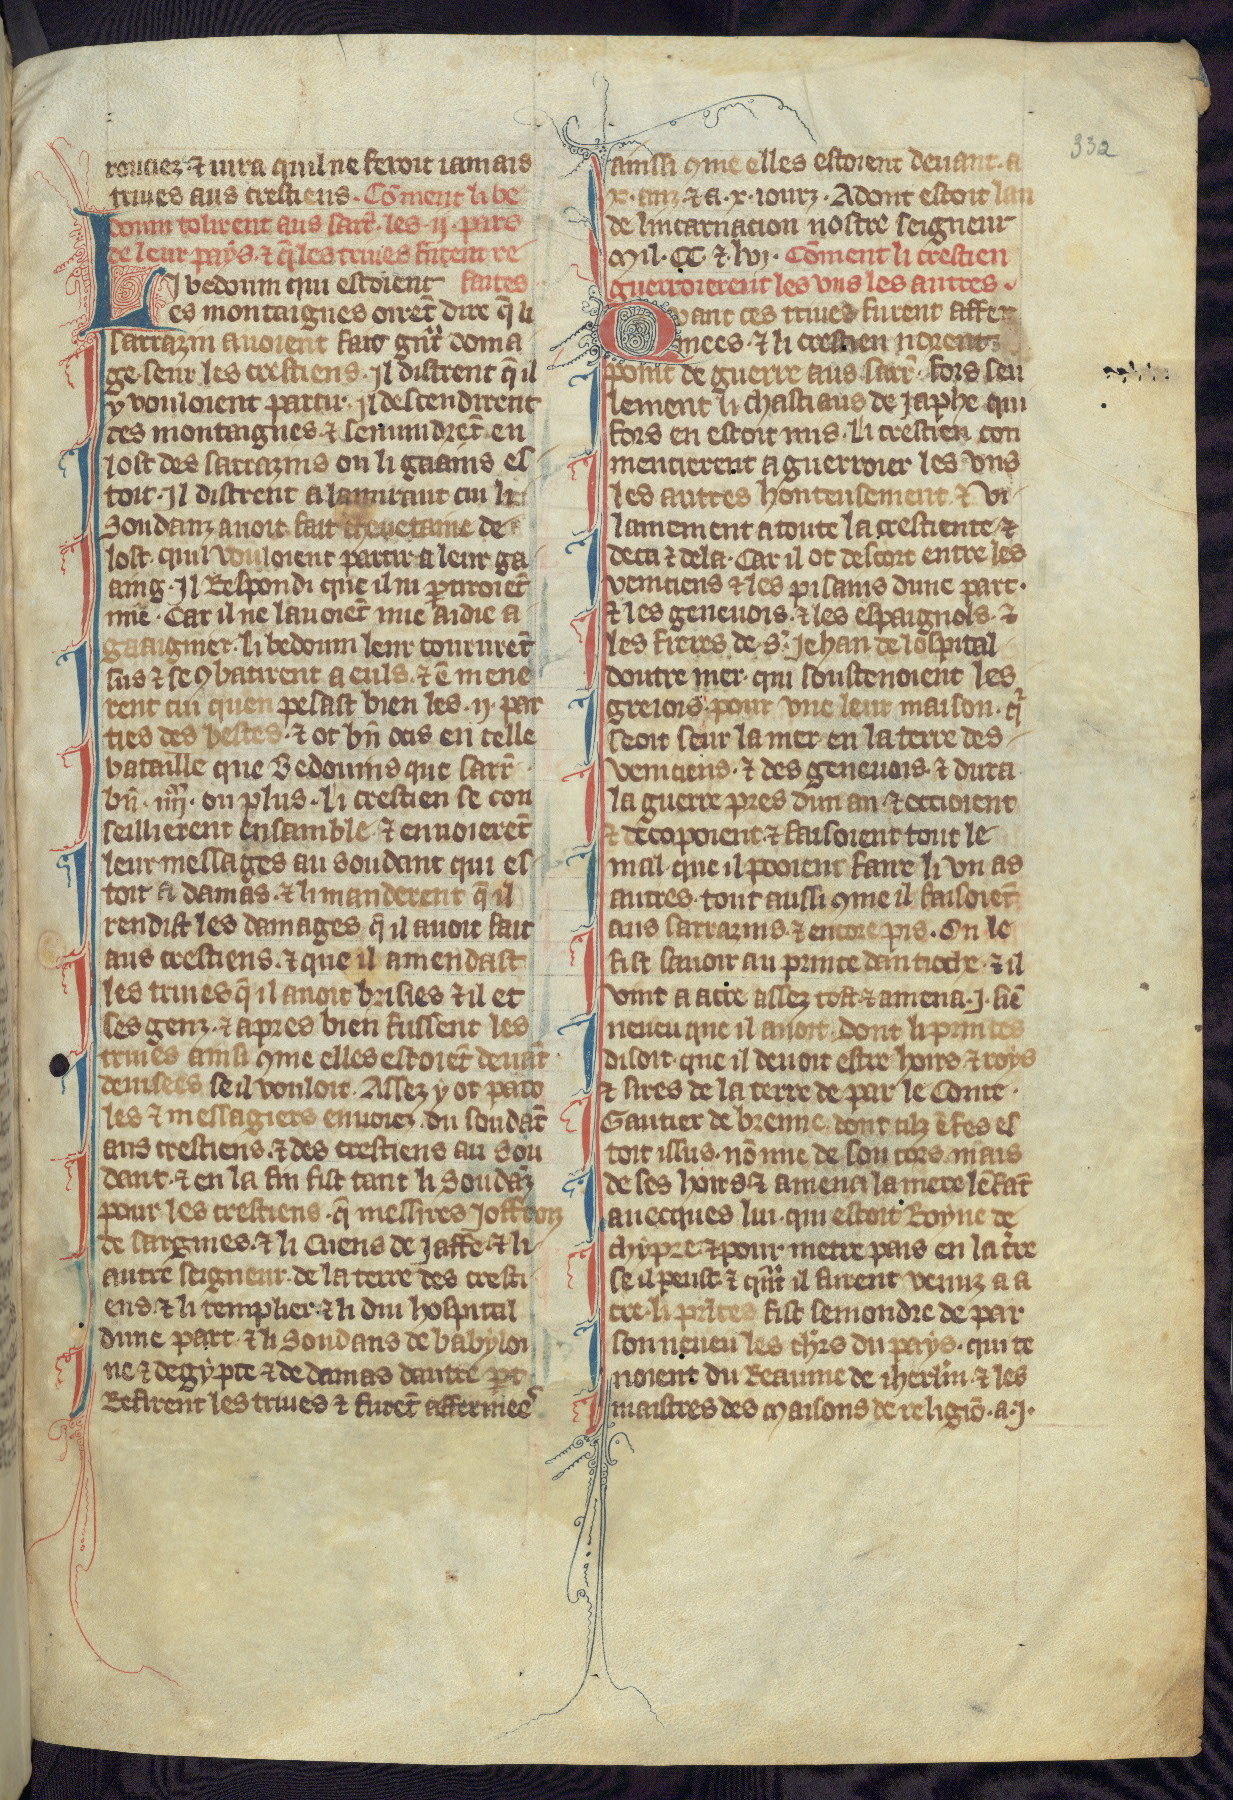 332
rouciez ⁊ iura quil ne feroit iamais
triues aus crestiens. Cōment li be
douin tolirent aus sarr̄. les .ij. pars
de leur pays. ⁊ q̄ les triues furent re
faites
LI bedouin qui estoient
es montaignes oirēt dire q̄ li
sarrazin auoient fait gnt doma
ge seur les crestiens. Il distrent q̄ il
y vouloient partir. il descendirent
des montaignes ⁊ semidrēt en
lost des sarrazins ou li gaains es
toit. Il distrent a lamiraut cui li
Soudanz auoit fait cheuetaine de
lost. quil vouloient partir a leur ga
aing. Il Respondi que il ni p̄tiroiēt
mie. Car il ne lauoiēt mie aidie a
gaaignier. li bedouin leur coururēt
sus ⁊ se ꝯbatirent a euls. ⁊ ē mene
rent cui quen pesast bien les .ij. par
ties des bestes. ⁊ ot bn̄ ocis en celle
bataille que Bedouins que sarr̄
bn̄ .iiijͫ. ou plus. li crestien se con
seillierent ensamble ⁊ enuoierēt
leur messages au soudant qui es
toit a damas. ⁊ li manderent q̄ il
rendist les damages q̄ il auoit fait
aus crestiens. ⁊ que il amendast
les triues q̄ il auoit brisies ⁊ il et
ses genz. ⁊ apres bien fussent les
triues ainsi ꝯme elles estoiēt deuāt
deuisees se il vouloit. Assez y ot paro
les ⁊ messagiers enuoiez. du soudāt
aus crestiens. ⁊ des crestiens au sou
dant. ⁊ en la fin fist tant li Soudāz
pour les crestiens. q̄ messires Joffroiz
de sargines. ⁊ li Cuens de Jaffe. ⁊ li
autre seigneur. de la terre des cresti
ens. ⁊ li templier. ⁊ li diu hospital
dune part. ⁊ li Soudans de babyloi
ne ⁊ degypte ⁊ de damas dautre p̄t
Refirent les triues ⁊ furēt affermees
ainssi ꝯme elles estoient deuant. a
.x. anz ⁊ a .x. iourz. Adont estoit lan
de lincarnacion nostre seigneur
Mil. CC. ⁊ lvj. Cōment li crestien
guerroierent les vns les autres.
Quant ces triues furent affer
mees. ⁊ li crestien norent
point de guerre aus sarr̄. fors seu
lement li chastiaus de Japhe qui
fors en estoit mis. li crestien con
mencierent a guerroier les vns
les autres honteusement. ⁊ vi
lainement a toute la crestiente. ⁊
deca ⁊ dela. Car il ot descort entre les
veniciens ⁊ les pisains dune part.
⁊ les geneuois. ⁊ les espaignols. ⁊
les freres de .S. Jehan de lospital
doutre mer. qui soustenoient les
greiois. pour vne leur maison. q̄
seoit seur la mer en la terre des
veniciens. ⁊ des geneuois. ⁊ dura
la guerre pres dun an. ⁊ occioient
⁊ decopoient ⁊ faisoient tout le
mal que il pooient faire li vn as
autres. tout aussi ꝯme il faisoiēt
aus sarrazins. ⁊ encore pis. On le
fist sauoir au prince dantioche. ⁊ il
vint a acre assez tost. ⁊ amena .j. siē
neueu que il auoit. dont li princes
disoit. que il deuoit estre hoirs. ⁊ roys
⁊ sires de la terre de par le Conte.
Gautier de brenne. dont cilz ēfes es
toit issus. nō mie de son cors. mais
de ses hoirs. ⁊ amena la mere lēfāt
auecques lui. qui estoit Royne de
chypre. ⁊ pour metre pais en la t̄re
se il peust. ⁊ qn̄t il furent venuz a a
cre. li prīces fist semondre de par
son neueu les ch̄rs du pays. qui te
noient du Reaume de iherl̄m. ⁊ les
maistres des maisons de religiō. a .j.